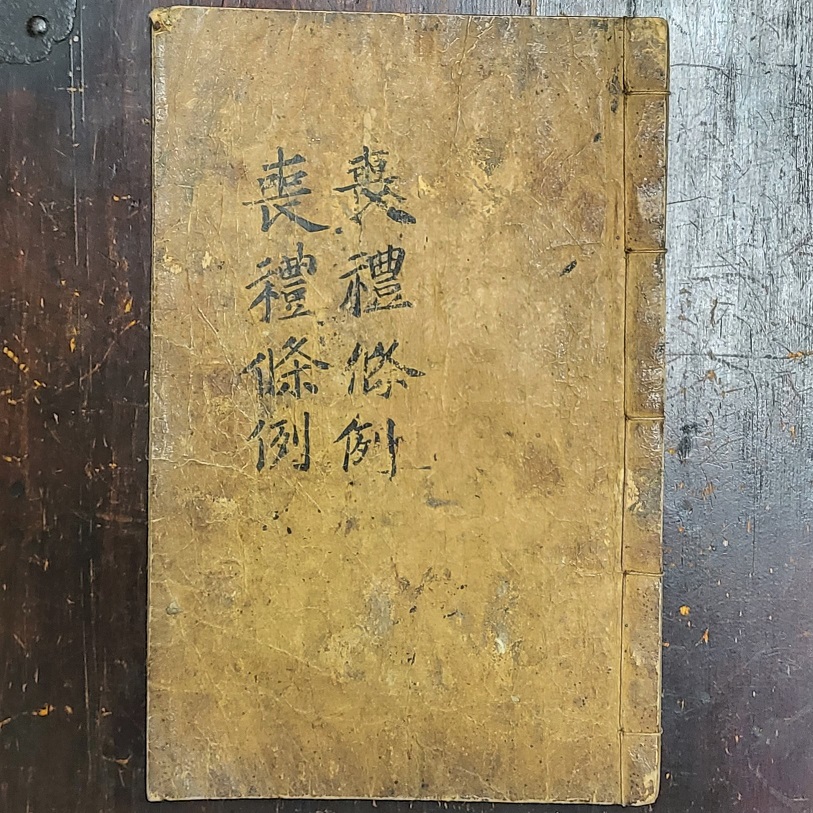 喪禮條例
喪禮條例